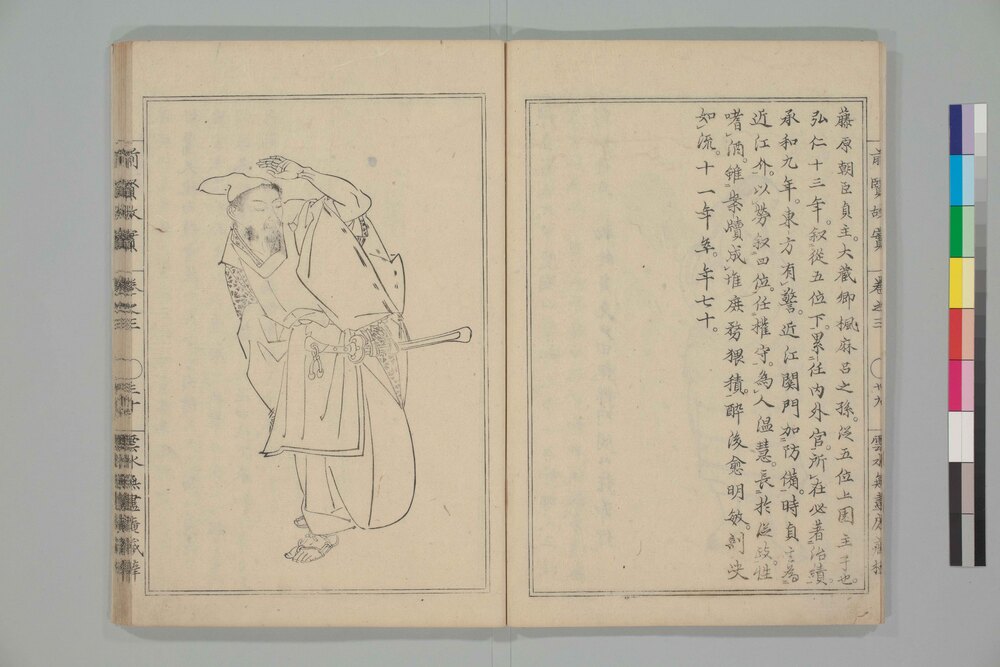 藤原朝臣貞主。大蔵卿楓麻呂之孫。從五位上園主子也。
弘仁十三年。叙從五位下。累任内外官。所在必著治績。
承和九年。東方有警。近江関門加防備。時貞主為
近江介。以勞叙四位。任權守。為人温慧。長於從政。性
嗜酒。雖案牘成堆庶務猥積。醉後愈明敏。剖决
如流。十一年卒。年七十。
前賢故實
卷之三
廿九
雲水無盡庵藏
前賢故實
卷之三
三十
雲水無盡庵藏